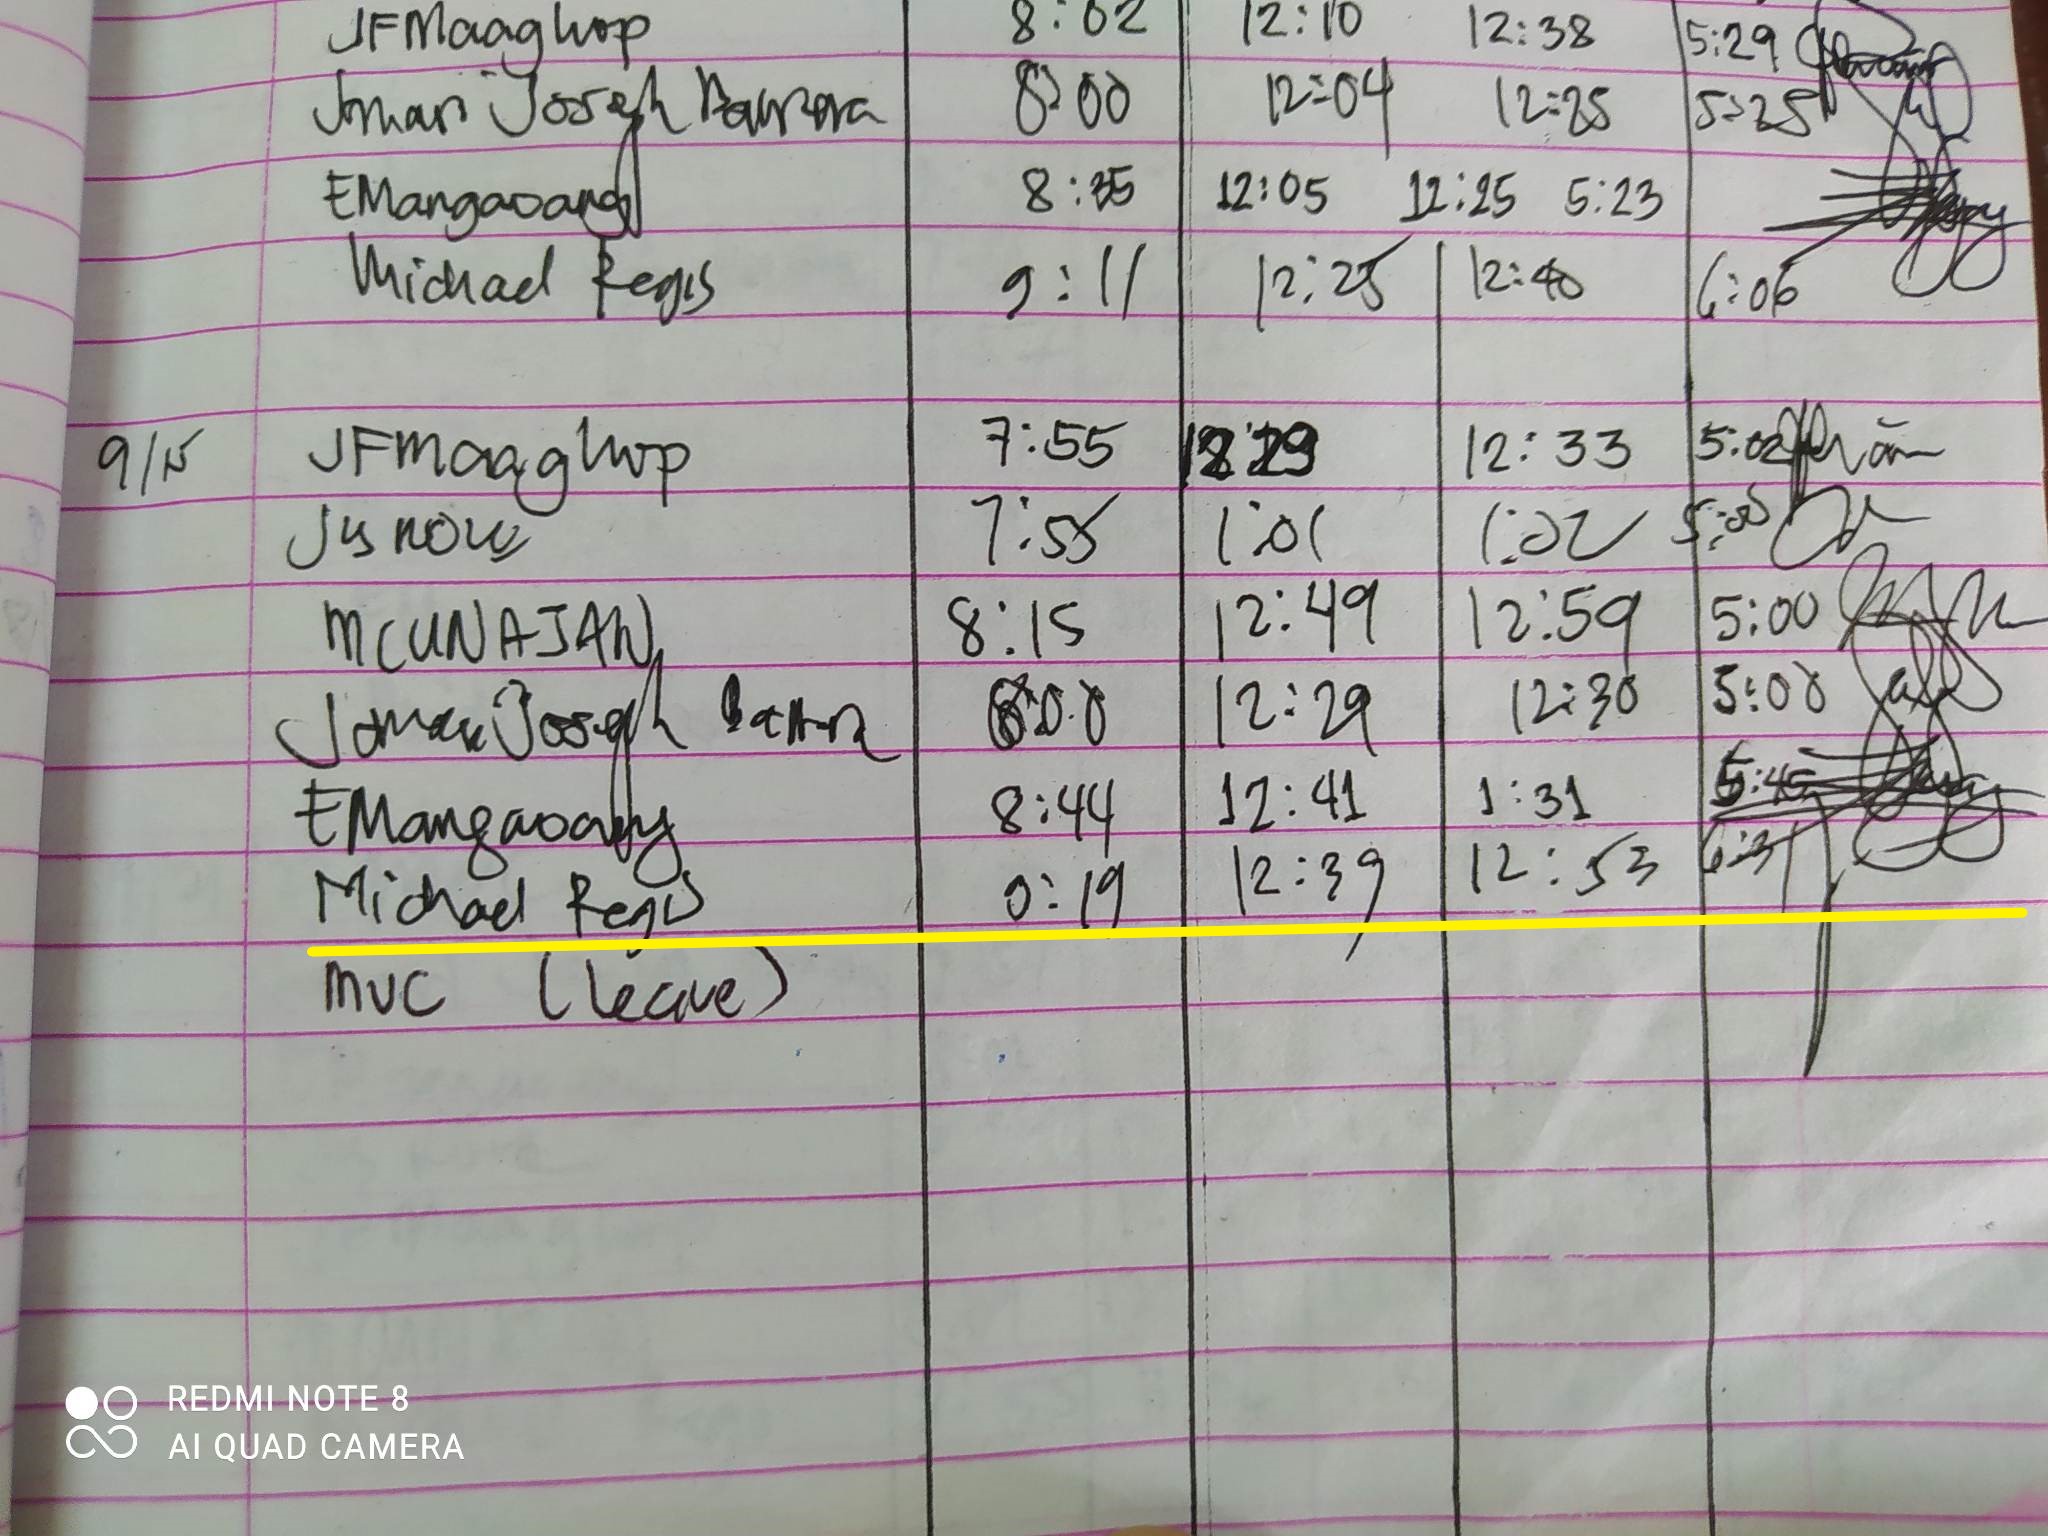 JFMaaghop 8:02 12:10 12:38 5:29
Joseph 8:00 12:04 12:25 5:25
EMangaoang 8:35 12:05 12:25 5:23
Michael Regis 9:11 12:25 12:40 6:06
JFMaaghop 7:55 12:33 5:02
7:55 1:01 1:02
MCUNAJAN 8:15 12:49 12:59 5:00
Joseph 12:29 12:30 5:00
EMangaoang 8:44 12:41 1:31 5:45
Michael Regis 9:19 12:39 12:53
MVC (leave)
REDMI NOTE 8
AI QUAD CAMERA